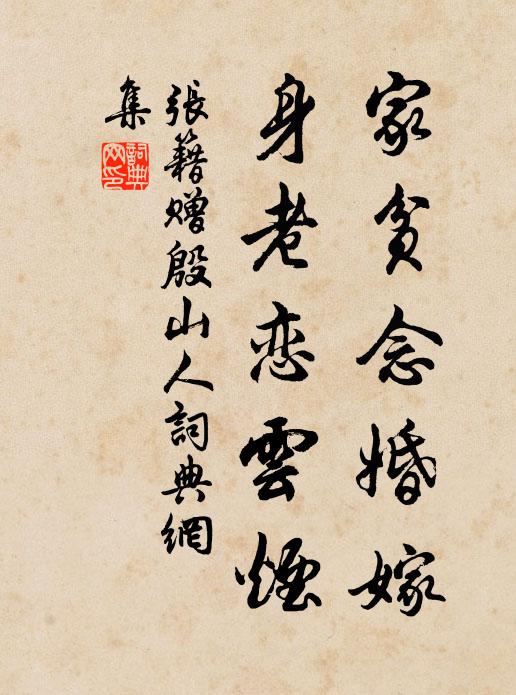 家貧念婚嫁
身老恋雲煙
張籍贈殷山人詞典網
集
詞典
网印